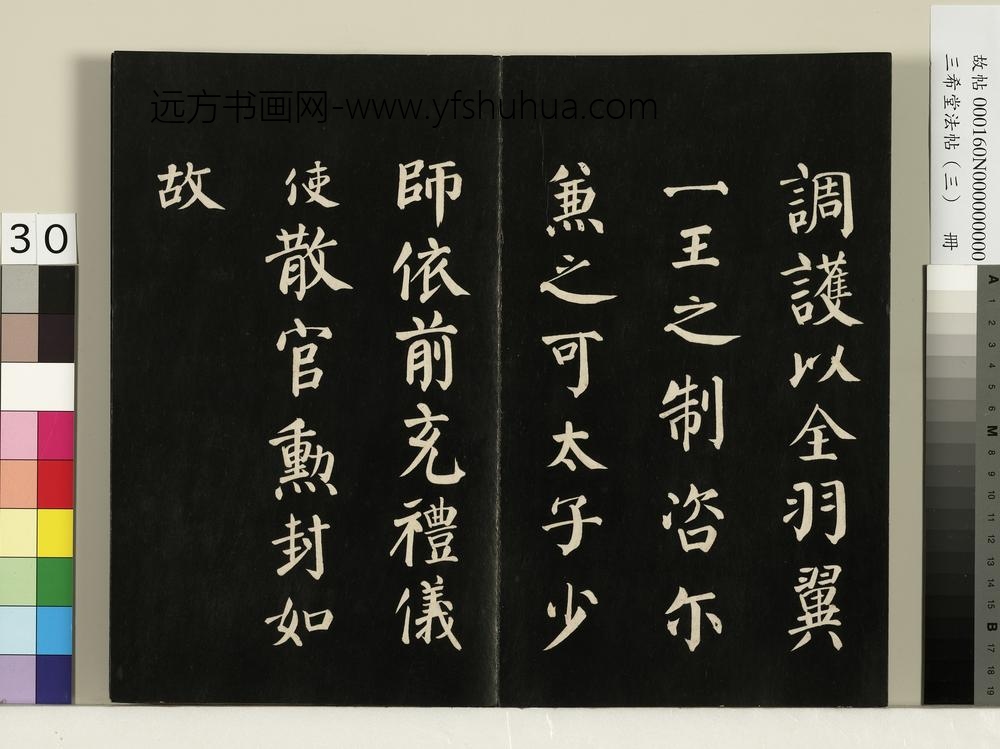 調護以全羽翼
一王之制咨尔
兼之可太子少
師依前充禮儀
使散官勲封如
故
远方书画网-www.yfshuhua.com
故帖 000160N000000000
三希堂法帖（三） 冊
30
A 1 2 3 4 5 6 M 8 9 10 11 12 13 14 15 B 17 18 19